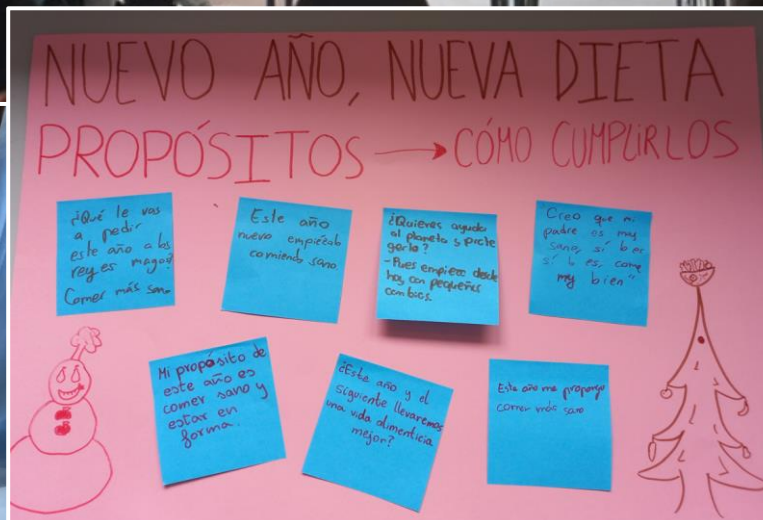 NUEVO AÑO, NUEVA DIETA
PROPÓSITOS → CÓMO CUMPLIRLOS
¿Qué le vas
a pedir
este año a los
reyes magos?
Comer más sano
Este año
nuevo empiezalo
comiendo sano.
¿Quieres ayudar
al planeta y prote
gerlo?
-Pues empieza desde
hoy con pequeños
cambios.
Creo que mi
padre es muy
sano, sí lo es
sí lo es, come
muy bien"
Mi propósito de
este año es
comer sano y
estar en
forma.
¿Este año y el
siguiente llevaremos
una vida alimenticia
mejor?
Este año me propongo
comer más sano